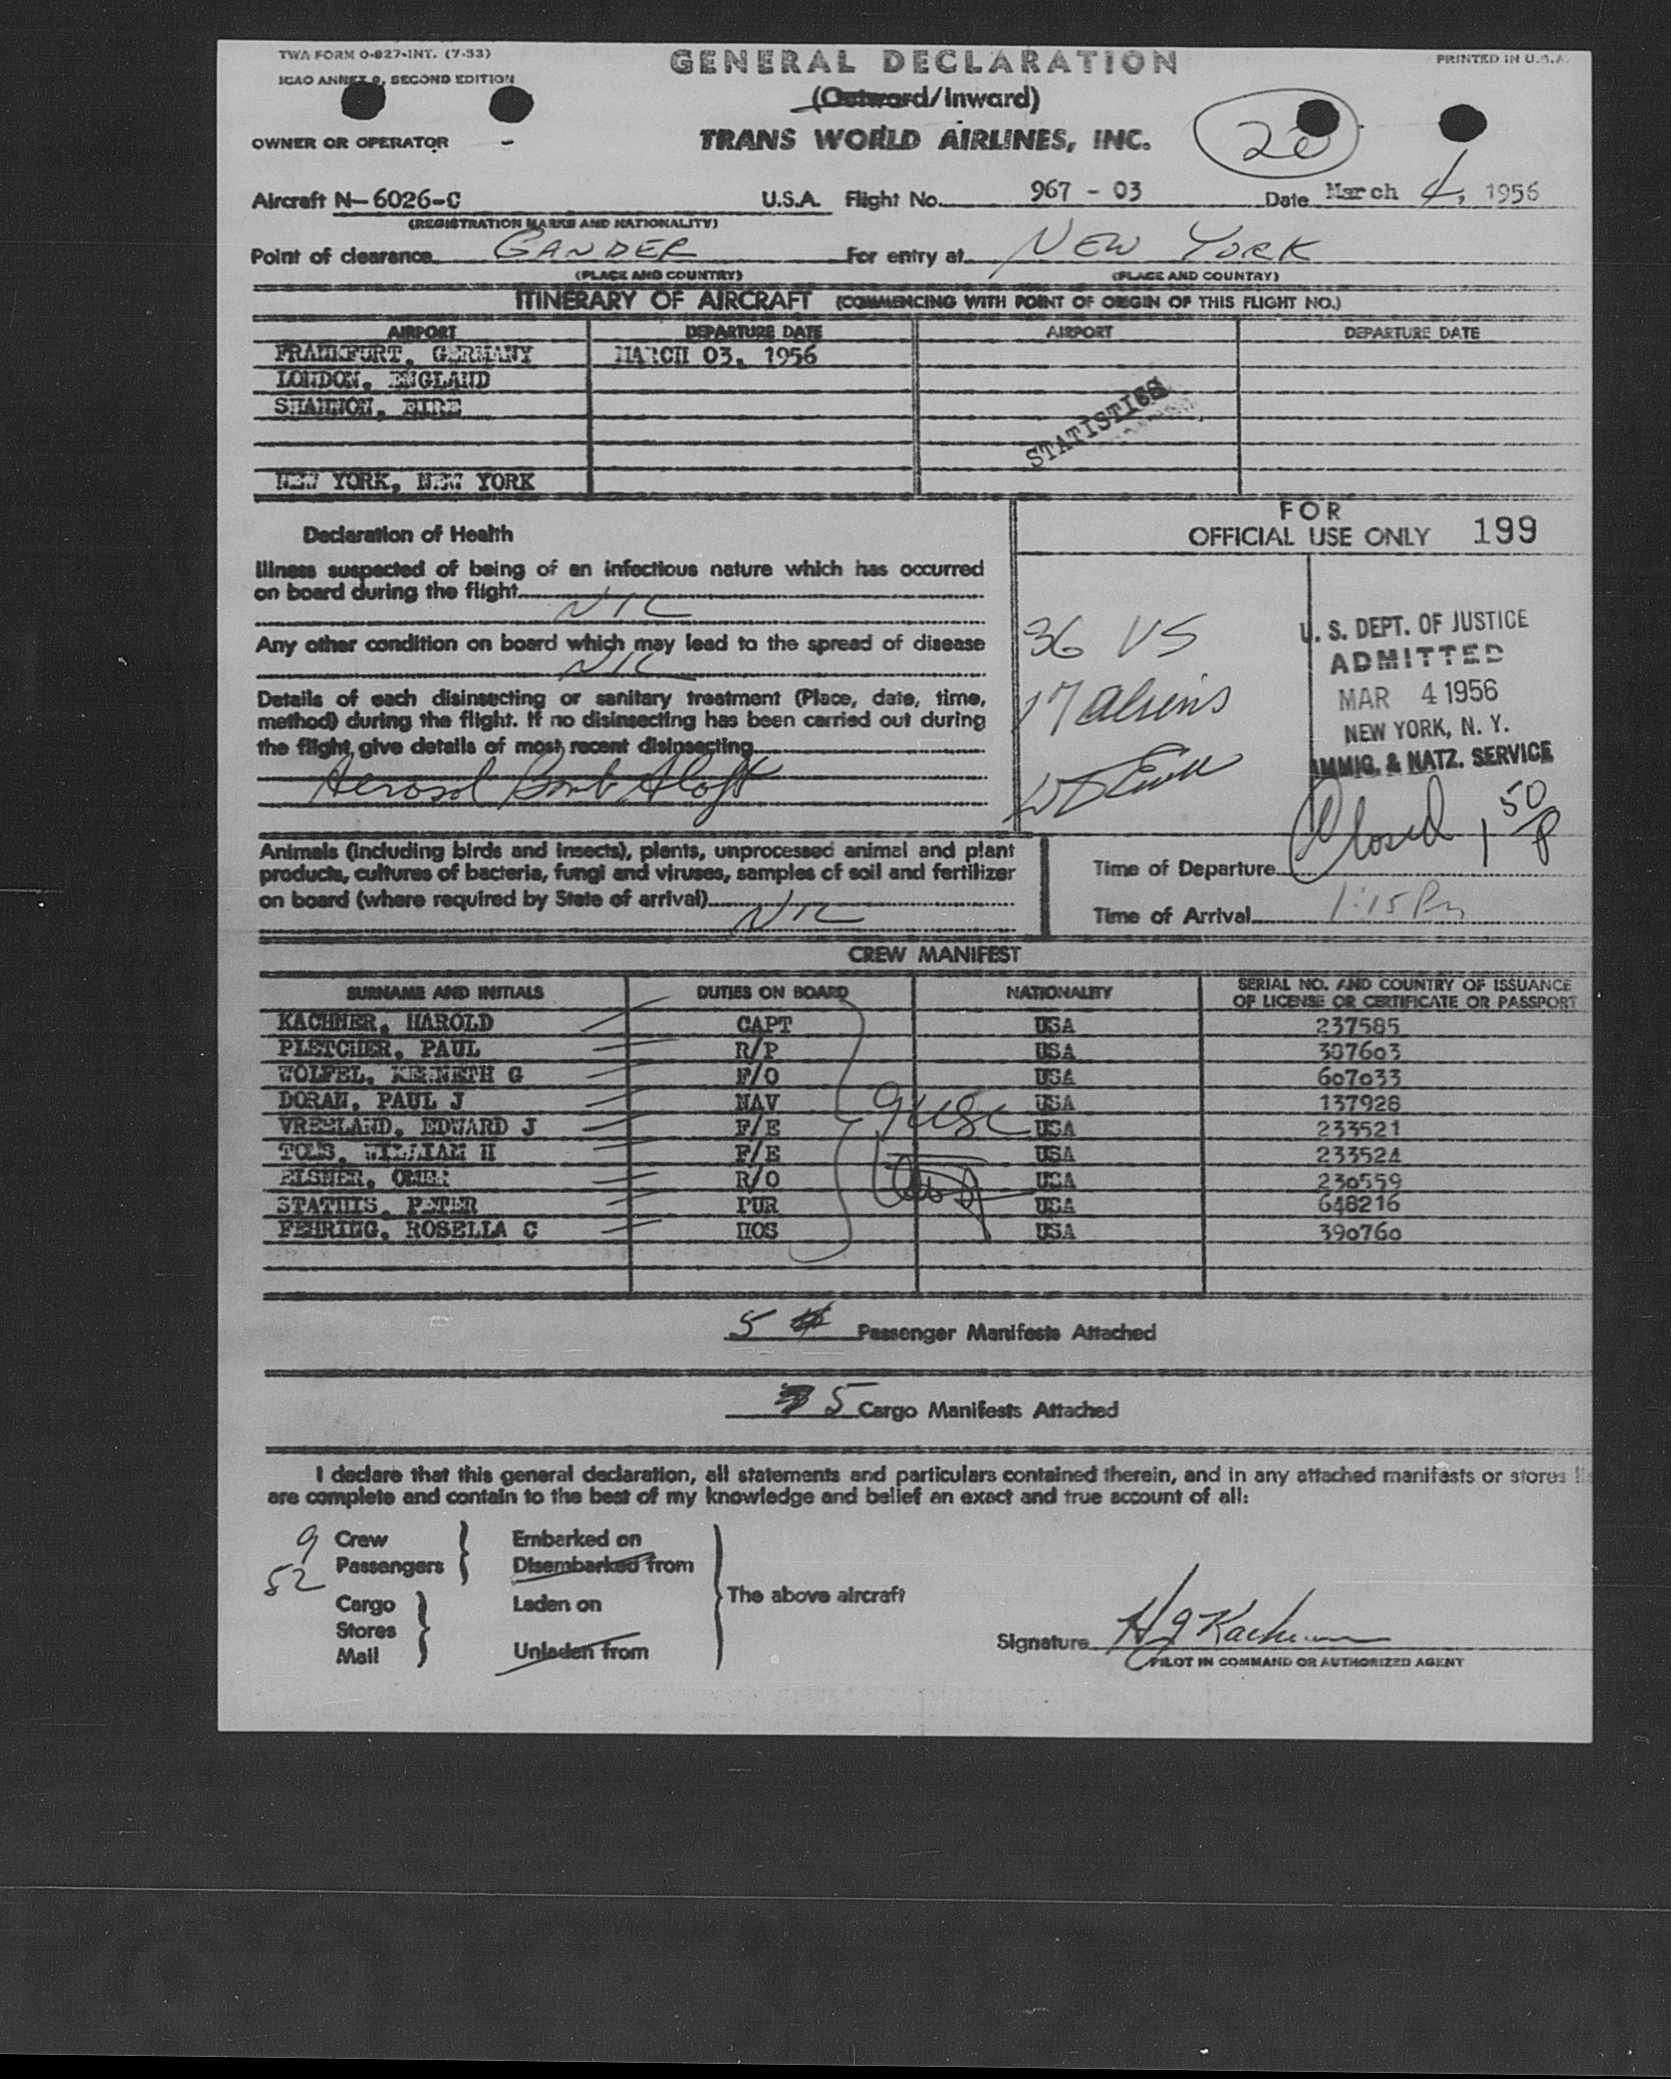 TWA FORM O-827-INT. (7-53)
ICAO ANNEX 9, SECOND EDITION
PRINTED IN U.S.A.
GENERAL DECLARATION
(Outward/Inward)
TRANS WORLD AIRLINES, INC.
20
OWNER OR OPERATOR
Aircraft N-6026-C U.S.A. Flight No. 967 - 03 Date March 4, 1956
(REGISTRATION MARKS AND NATIONALITY)
Point of clearance GANDER For entry at NEW YORK
(PLACE AND COUNTRY) (PLACE AND COUNTRY)
ITINERARY OF AIRCRAFT (COMMENCING WITH POINT OF ORIGIN OF THIS FLIGHT NO.)
AIRPORT DEPARTURE DATE AIRPORT DEPARTURE DATE
FRANKFURT, GERMANY MARCH 03, 1956
LONDON, ENGLAND
SHANNON, EIRE
STATISTICS
NEW YORK, NEW YORK
FOR
OFFICIAL USE ONLY 199
Declaration of Health
Illness suspected of being of an infectious nature which has occurred
on board during the flight
NIL
Any other condition on board which may lead to the spread of disease
NIL
Details of each disinsecting or sanitary treatment (Place, date, time,
method) during the flight. If no disinsecting has been carried out during
the flight, give details of most recent disinsecting
Aerosol Bomb Aloft
36 US
17 Aliens
U. S. DEPT. OF JUSTICE
ADMITTED
MAR 4 1956
NEW YORK, N. Y.
IMMIG. & NATZ. SERVICE
Closed 1 50 P
Animals (including birds and insects), plants, unprocessed animal and plant
products, cultures of bacteria, fungi and viruses, samples of soil and fertilizer
on board (where required by State of arrival)
NIL
Time of Departure
Time of Arrival 1:15 Pm
CREW MANIFEST
SURNAME AND INITIALS DUTIES ON BOARD NATIONALITY SERIAL NO. AND COUNTRY OF ISSUANCE
OF LICENSE OR CERTIFICATE OR PASSPORT
KACHNER, HAROLD CAPT USA 237585
PLETCHER, PAUL R/P USA 307603
WOLFEL, KENNETH G F/O USA 607033
DORAN, PAUL J NAV USA 137928
VREELAND, EDWARD J F/E USA 233521
TOLS, WILLIAM H F/E USA 233524
ELSNER, OMER R/O USA 230559
STATHIS, PETER PUR USA 648216
FEHRING, ROSELLA C HOS USA 390760
9 USC
5 Passenger Manifests Attached
5 Cargo Manifests Attached
I declare that this general declaration, all statements and particulars contained therein, and in any attached manifests or stores
are complete and contain to the best of my knowledge and belief an exact and true account of all:
9 Crew
52 Passengers
Embarked on
Disembarked from
Cargo
Stores
Mail
Laden on
Unladen from
The above aircraft
Signature H J Kachner
PILOT IN COMMAND OR AUTHORIZED AGENT